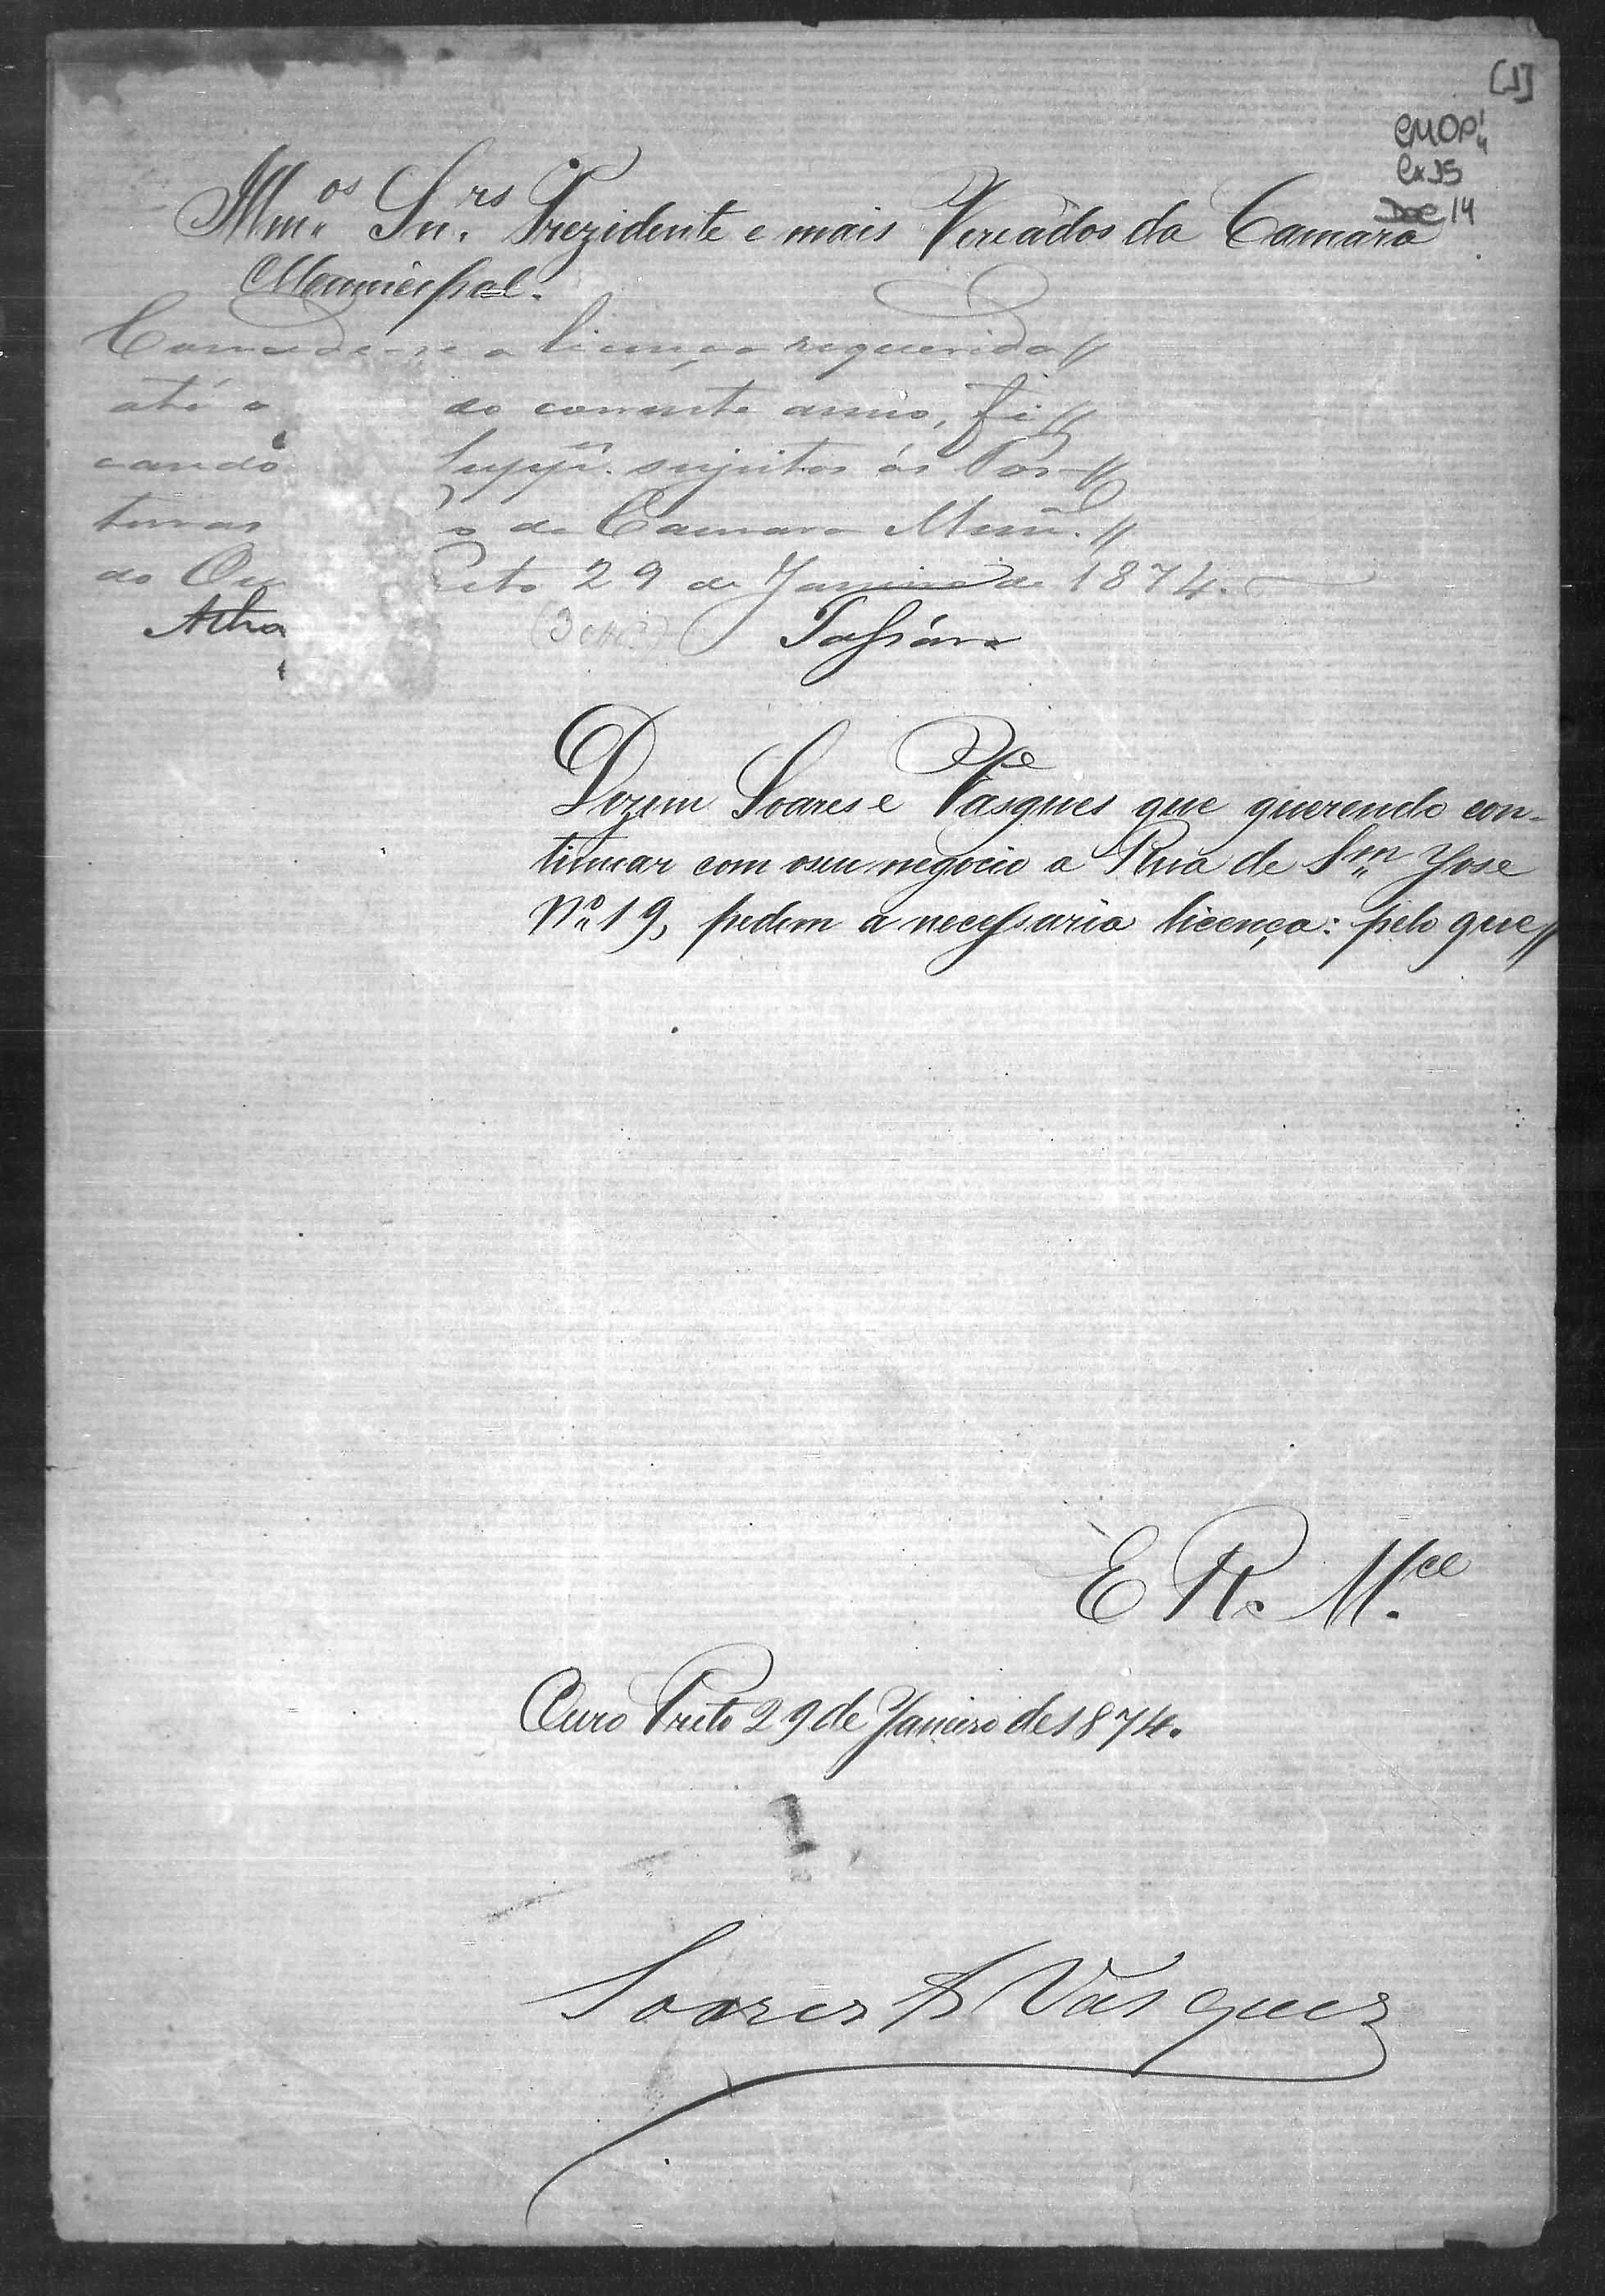 [1]
CMOP
Cx 35
Doc 14
Illm.os Sn.rs Prezidente e mais Vereàdos da Camara
Municipal.
Concede-se a licença requerida //
até o do corrente anno, fi //
cando Supp.es sujeitos ás Pos //
turas da Camara Mun. //
do Ou eto 29 de Janeiro de 1874.
Dizem Soares e Vasques que querendo con-
tinuar com oseu negocio a Rua de S.m Jose
N.o 19, pedem a necessaria licença: pelo que //
E R. M.ce
Ouro Preto 29 de Janeiro de 1874.
Soares & Vasques